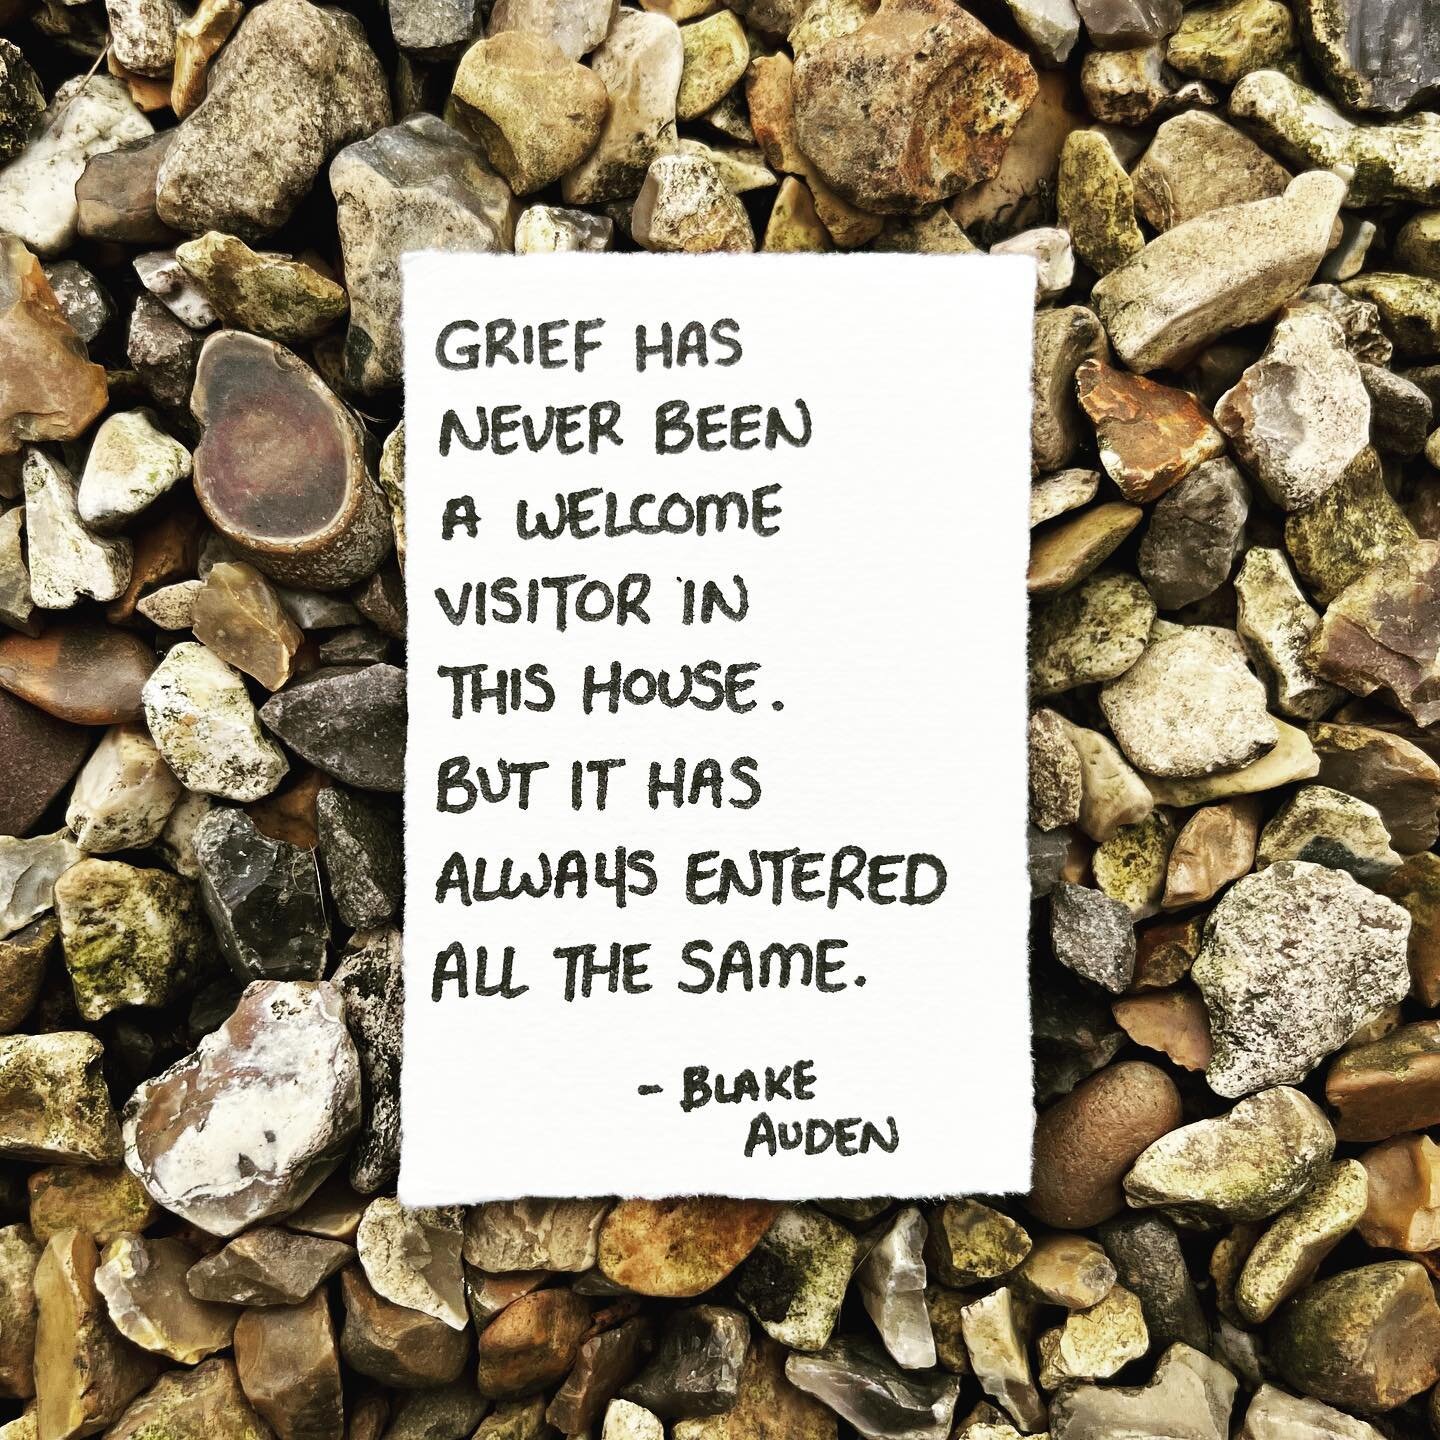 GRIEF HAS
NEVER BEEN
A WELCOME
VISITOR IN
THIS HOUSE.
BUT IT HAS
ALWAYS ENTERED
ALL THE SAME.
- BLAKE
AUDEN